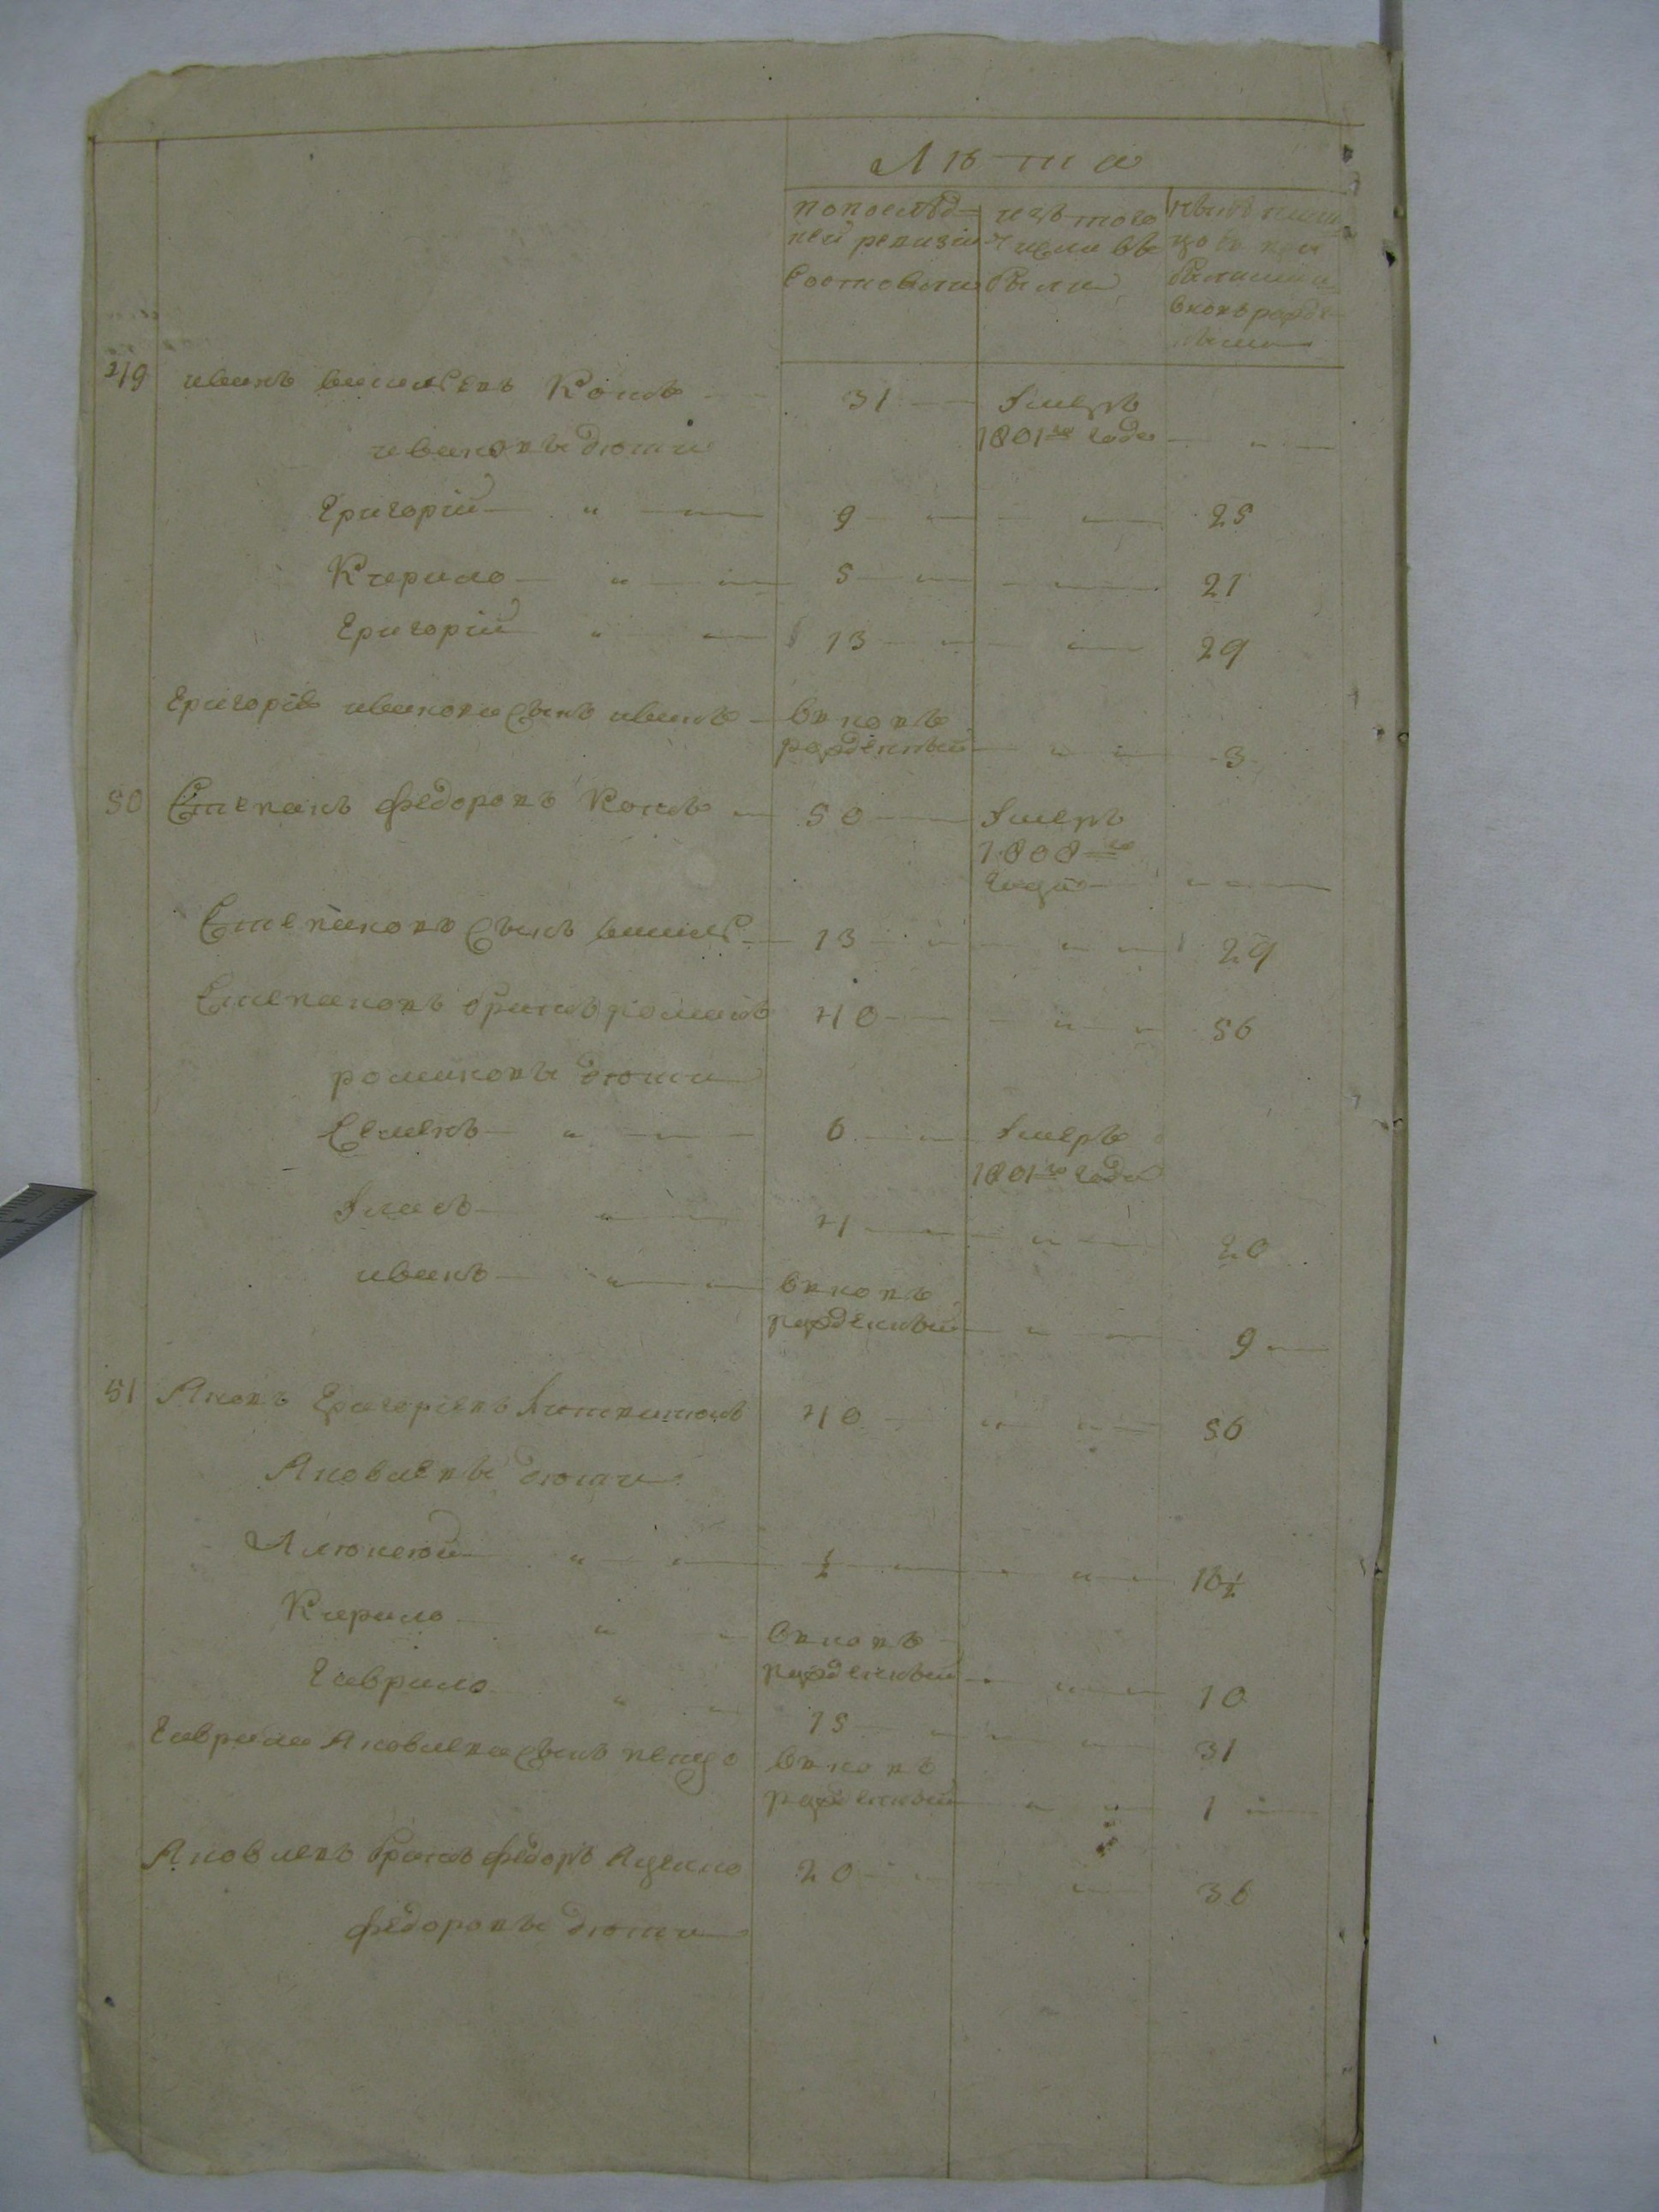 Лѣта
попослѣд=
ней ревизіи
состояли
изъ того
числа вы
были
нынѣ
49 иванъ васильевъ Котъ 31 Умеръ
1801го года
ивановы дѣти
Григорій " 9 25
Кирило " 5 21
Григорій " 13 29
Григорія иванова сынъ иванъ вновь
рожденный 3
50 Степанъ федоровъ Котъ 50 Умеръ
1808го
года
Степановъ сынъ василь 13 29
Степановъ братъ романъ 40 56
романовы дѣти
Семенъ " 6 Умеръ
1801го года
" 4 20
иванъ " вновь
рожденный 9
51 Яковъ Григорьевъ 40 56
Яковлевы дѣти
Алѣксѣй " ½ 16½
Кирило " вновь
рожденный 10
Гаврило " 15 31
Гаврила Яковлева сынъ петро вновь
рожденный 1
Яковлевъ братъ федоръ 20 36
федоровы дѣти